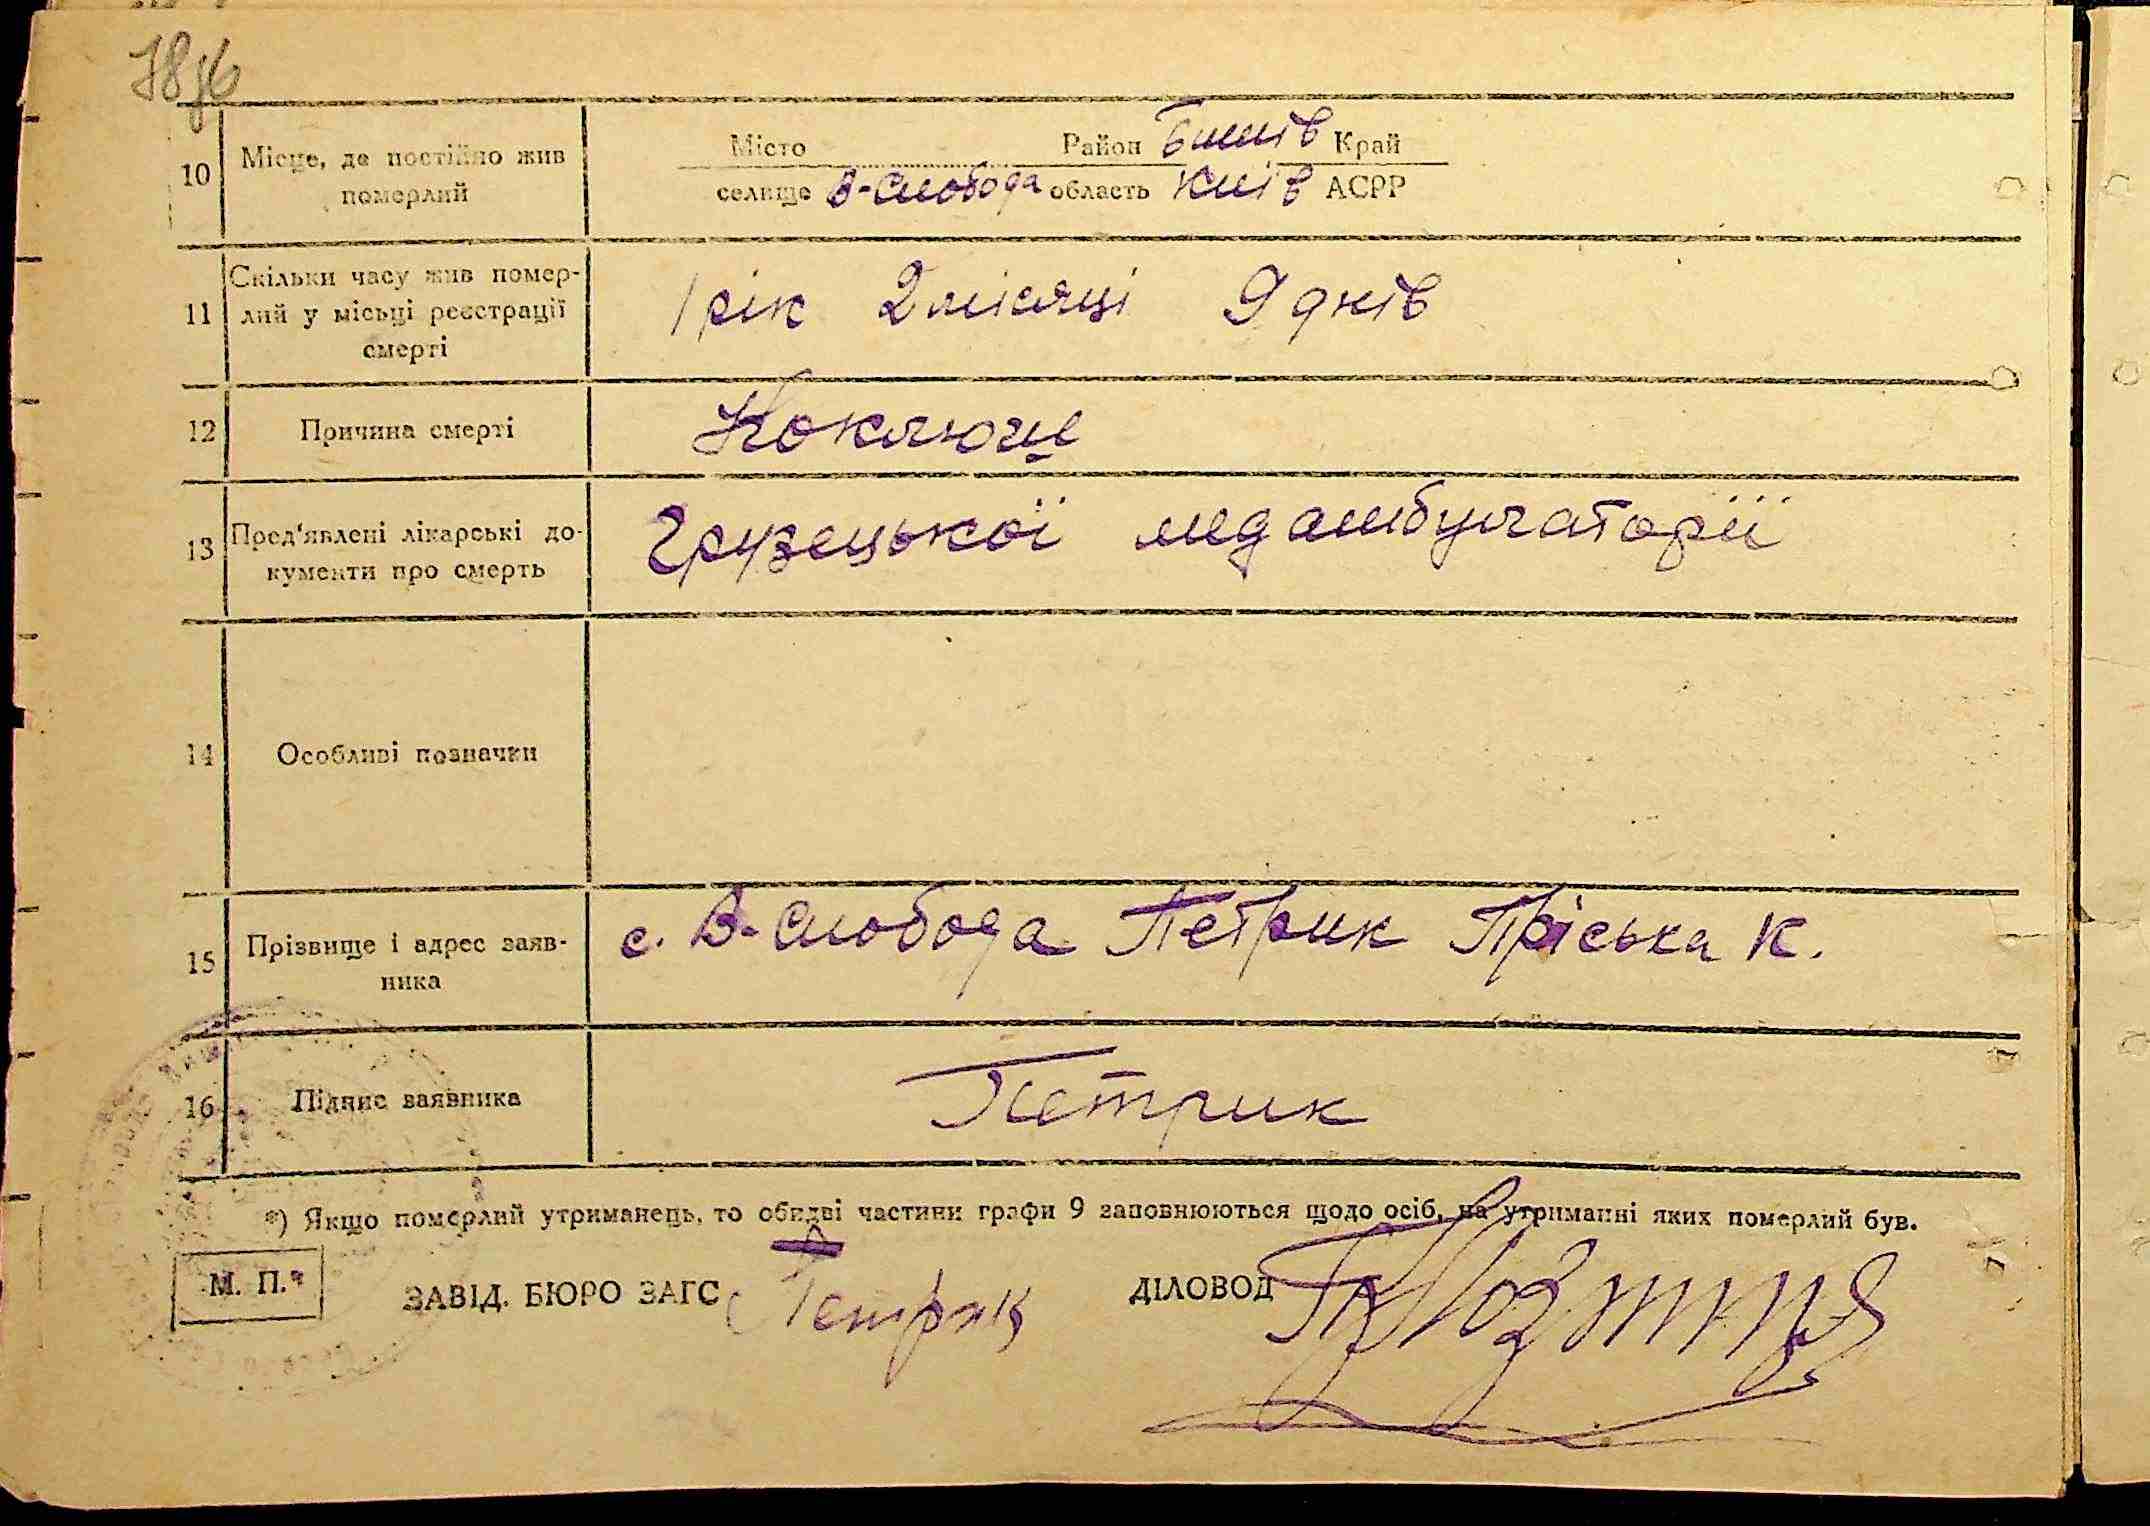 10 Місце, де постійно жив померлий
Місто Район Бишів Край
селище В-Слобода область Київ АСРР
11 Скільки часу жив помер-
лий у місьці реєстрації
смерті
1 рік 2 місяці 9 днів
12 Причина смерті Коклюш
13 Пред'явлені лікарські до-
кументи про смерть
Грузецької мед амбулаторії
14 Особливі позначки
15 Прізвище і адрес заяв-
ника
с. В-Слобода Петрик Пріська К.
16 Підпис заявника Петрик
*) Якщо померлий утриманець, то обидві частини графи 9 заповнюються щодо осіб, на утриманні яких померлий був.
М. П. ЗАВІД. БЮРО ЗАГС Петрик ДІЛОВОД